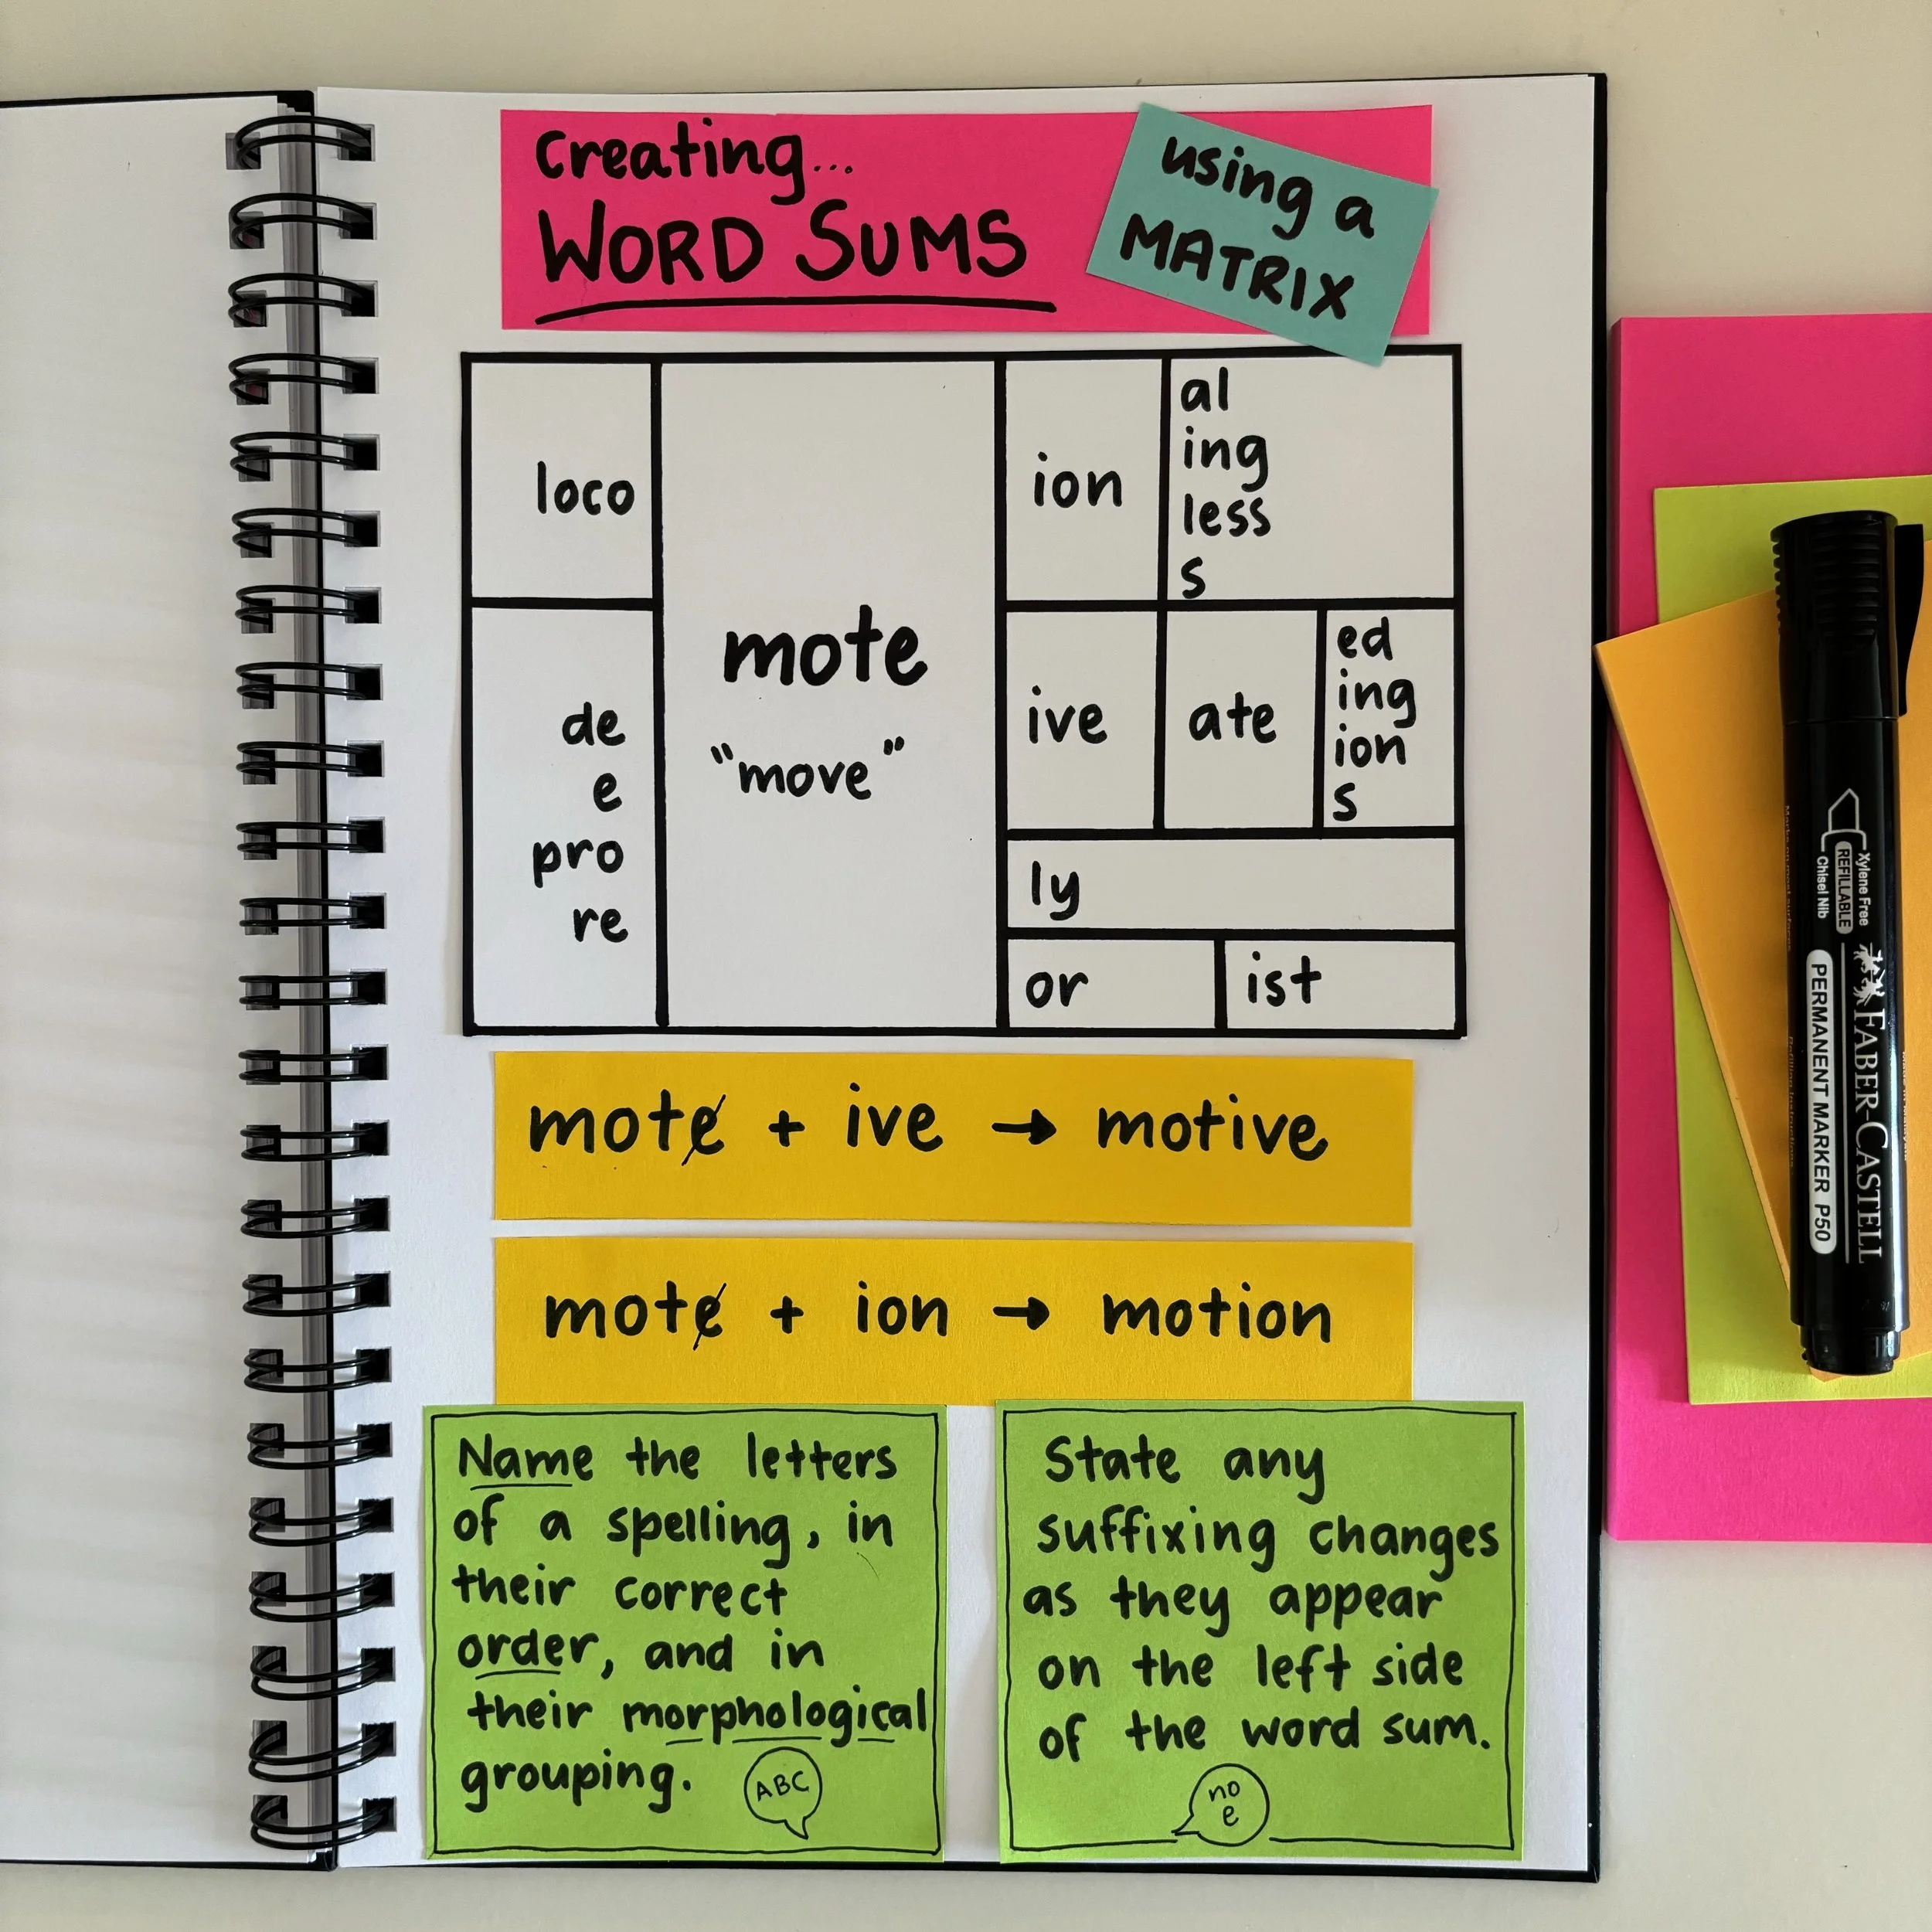 Creating...
WORD SUMS
using a
MATRIX
loco
de
e
pro
re
mote
"move"
ion
al
ing
less
s
ive
ate
ed
ing
ion
s
ly
or
ist
mote + ive → motive
mote + ion → motion
Name the letters
of a spelling, in
their correct
order, and in
their morphological
grouping.
ABC
State any
suffixing changes
as they appear
on the left side
of the word sum.
no
e
Xylene Free
REFILLABLE
Chisel Nib
FABER-CASTELL
PERMANENT MARKER P50